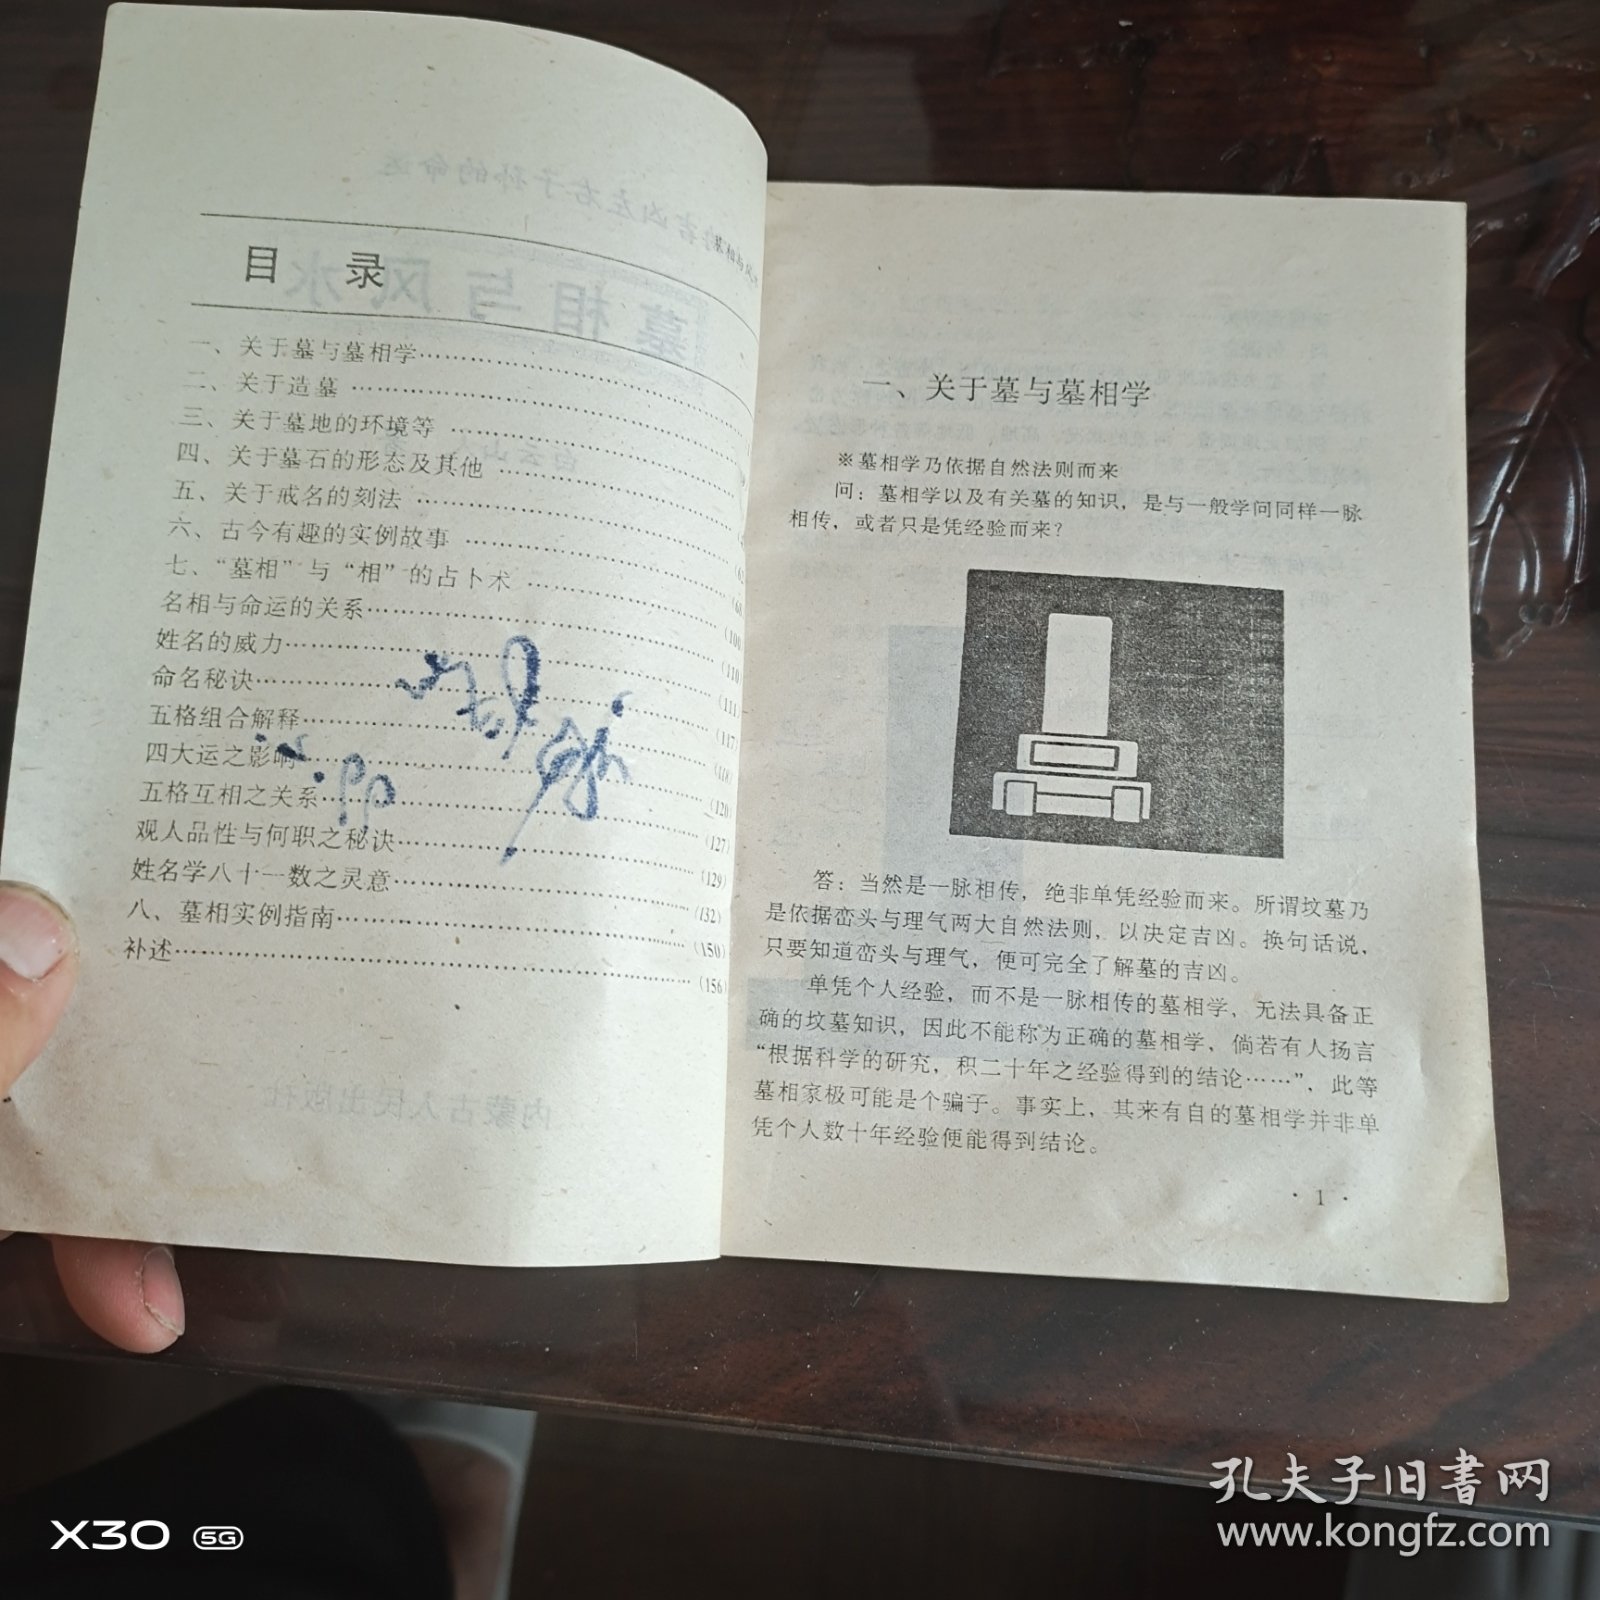 目 录
一、关于墓与墓相学
二、关于造墓
三、关于墓地的环境等
四、关于墓石的形态及其他
五、关于戒名的刻法
六、古今有趣的实例故事
七、“墓相”与“相”的占卜术
名相与命运的关系……(100)
姓名的威力……(110)
命名秘诀……(111)
五格组合解释……(117)
四大运之影响……(118)
五格互相之关系……(120)
观人品性与何职之秘诀……(127)
姓名学八十一数之灵意……(129)
八、墓相实例指南……(150)
补述……(156)
一、关于墓与墓相学
※墓相学乃依据自然法则而来
问：墓相学以及有关墓的知识，是与一般学问同样一脉
相传，或者只是凭经验而来？
答：当然是一脉相传，绝非单凭经验而来。所谓坟墓乃
是依据峦头与理气两大自然法则，以决定吉凶。换句话说，
只要知道峦头与理气，便可完全了解墓的吉凶。
单凭个人经验，而不是一脉相传的墓相学，无法具备正
确的坟墓知识，因此不能称为正确的墓相学，倘若有人扬言
“根据科学的研究，积二十年之经验得到的结论……”，此等
墓相家极可能是个骗子。事实上，其来有自的墓相学并非单
凭个人数十年经验便能得到结论。
· 1 ·
X30 5G
孔夫子旧书网
www.kongfz.com